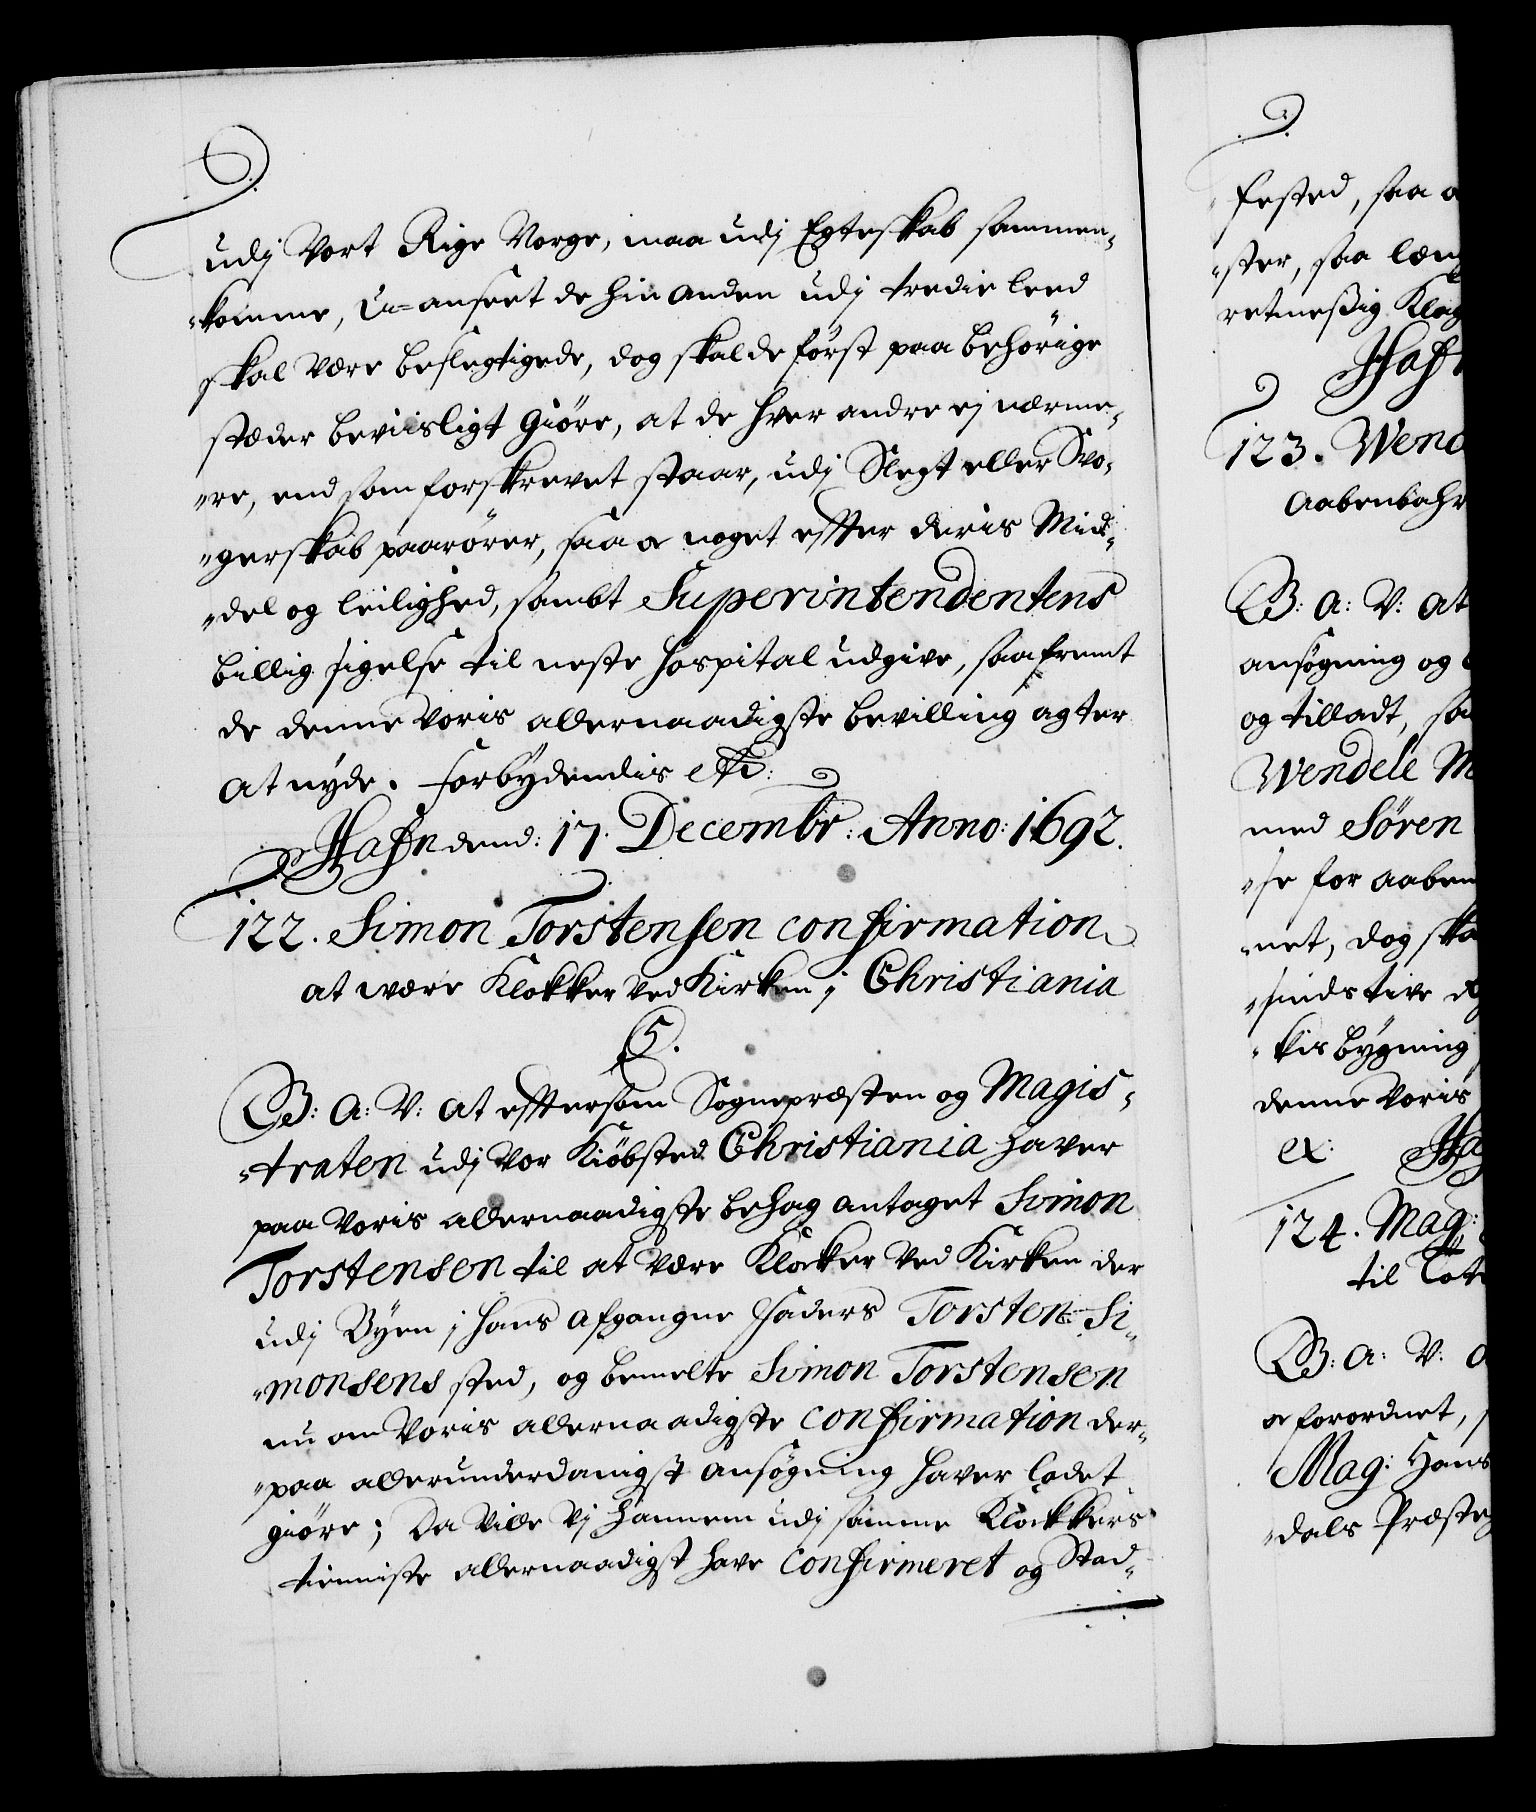 udj Vort Rige Norge, maa udj Egteskab sammen-
-komme, U-anseet de hin anden udj tredie leed
skal være beslegtigede, dog skal de først paa behørige
stæder beviisligt Giøre, at de hver andre ej nærme-
-re, end som forskrevet staar, udj Slegt eller Svo-
-gerskab paarører, saa oc noget effter deris Mid-
-del og leilighed, sambt Superintendentens
billig sigelse til neste Hospital udgive, saafremt
de denne Voris allernaadigste bevilling agter
at nyde. Forbydendis etc:
Hafn dend: 17. Decembr: Anno: 1692.
122. Simon Torstensen confirmation
at være Klokker ved Kirken j Christiania
C5.
G: A: V: at effterson Sognepræsten og Magis-
-traten udj Vor Kiøbsted Christiania haver
paa Voris allernaadigste behag antaget Simon
Torstensen til at være Klocker ved Kirken der
udj Byen j hans afgangne Faders Torsten Si-
-monsens sted, og bemelte Simon Torstensen
nu om Voris allernaadigste confirmation der-
-paa allerunderdanigst ansøgning haver ladet
giøre; Da Ville Vj hannem udj samme Klockkers
tienniste allernaadigst have confirmeret og Stad-
fested, saa
-ster, saa
retmeßig
Hafn
123. Wend
Aabenbahr
G: A: V: at
ansøgning og
og tilladt,
Wendele
med Søren
-se for aaben
-net, dog
-sindstive
-kis bygning
denne Voris
etc:
124. Mag:
til
G: A: V:
oc forordnet,
Mag: Hans
-dals Præste